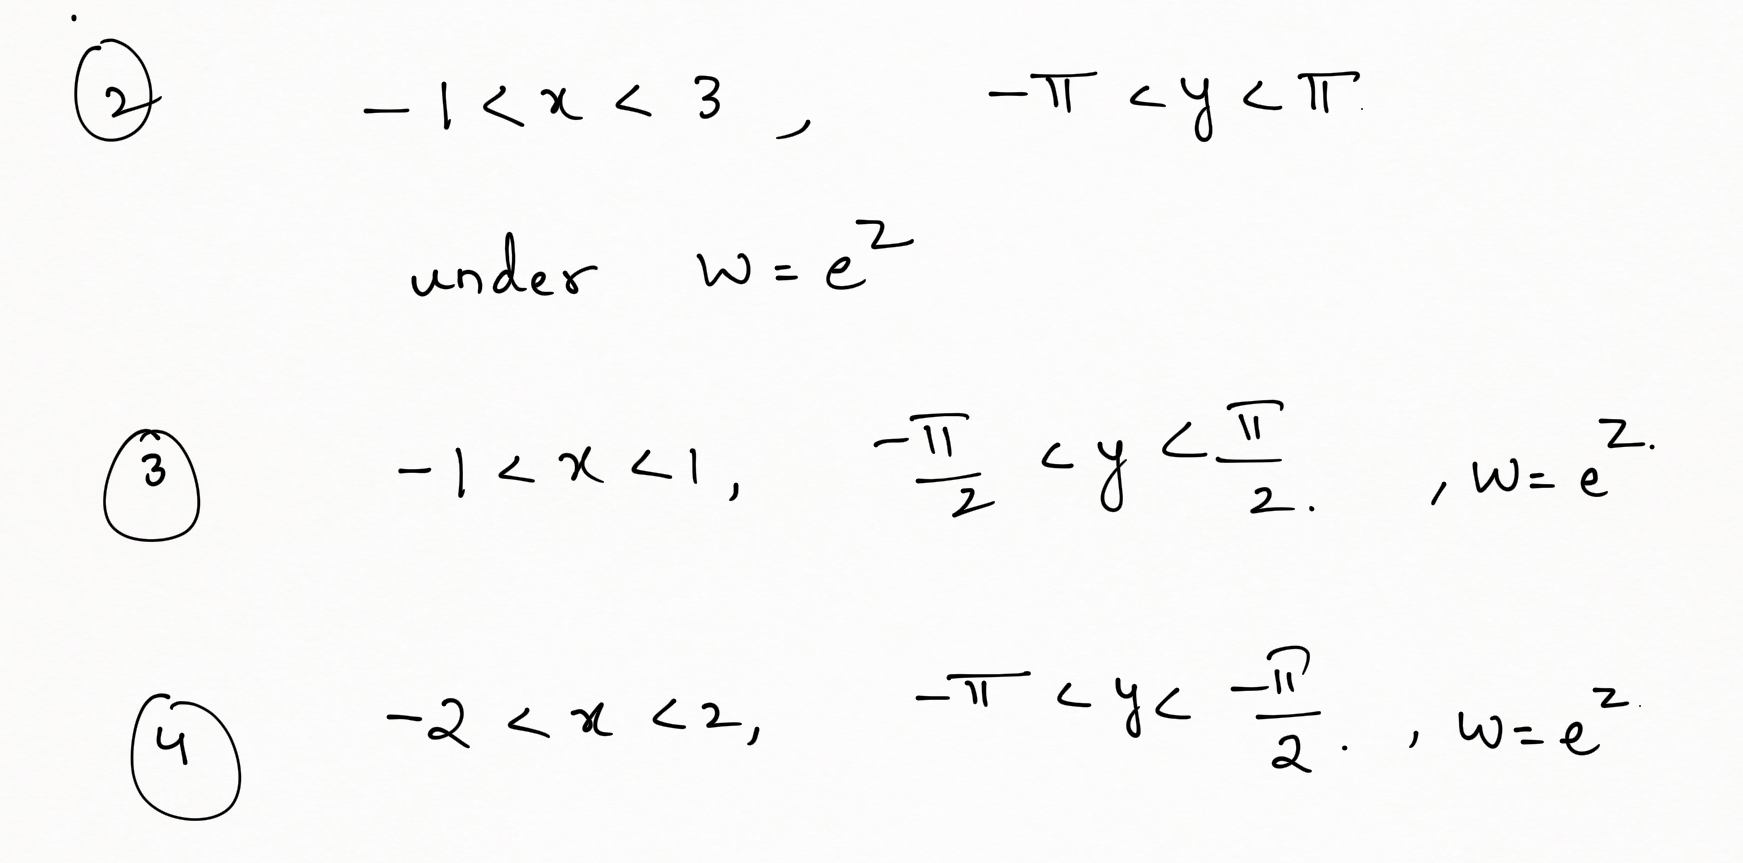 ② -1 < x < 3 , -π < y < π.
under w = e^z
③ -1 < x < 1, -π/2 < y < π/2. , w = e^z.
④ -2 < x < 2, -π < y < -π/2. , w = e^z.